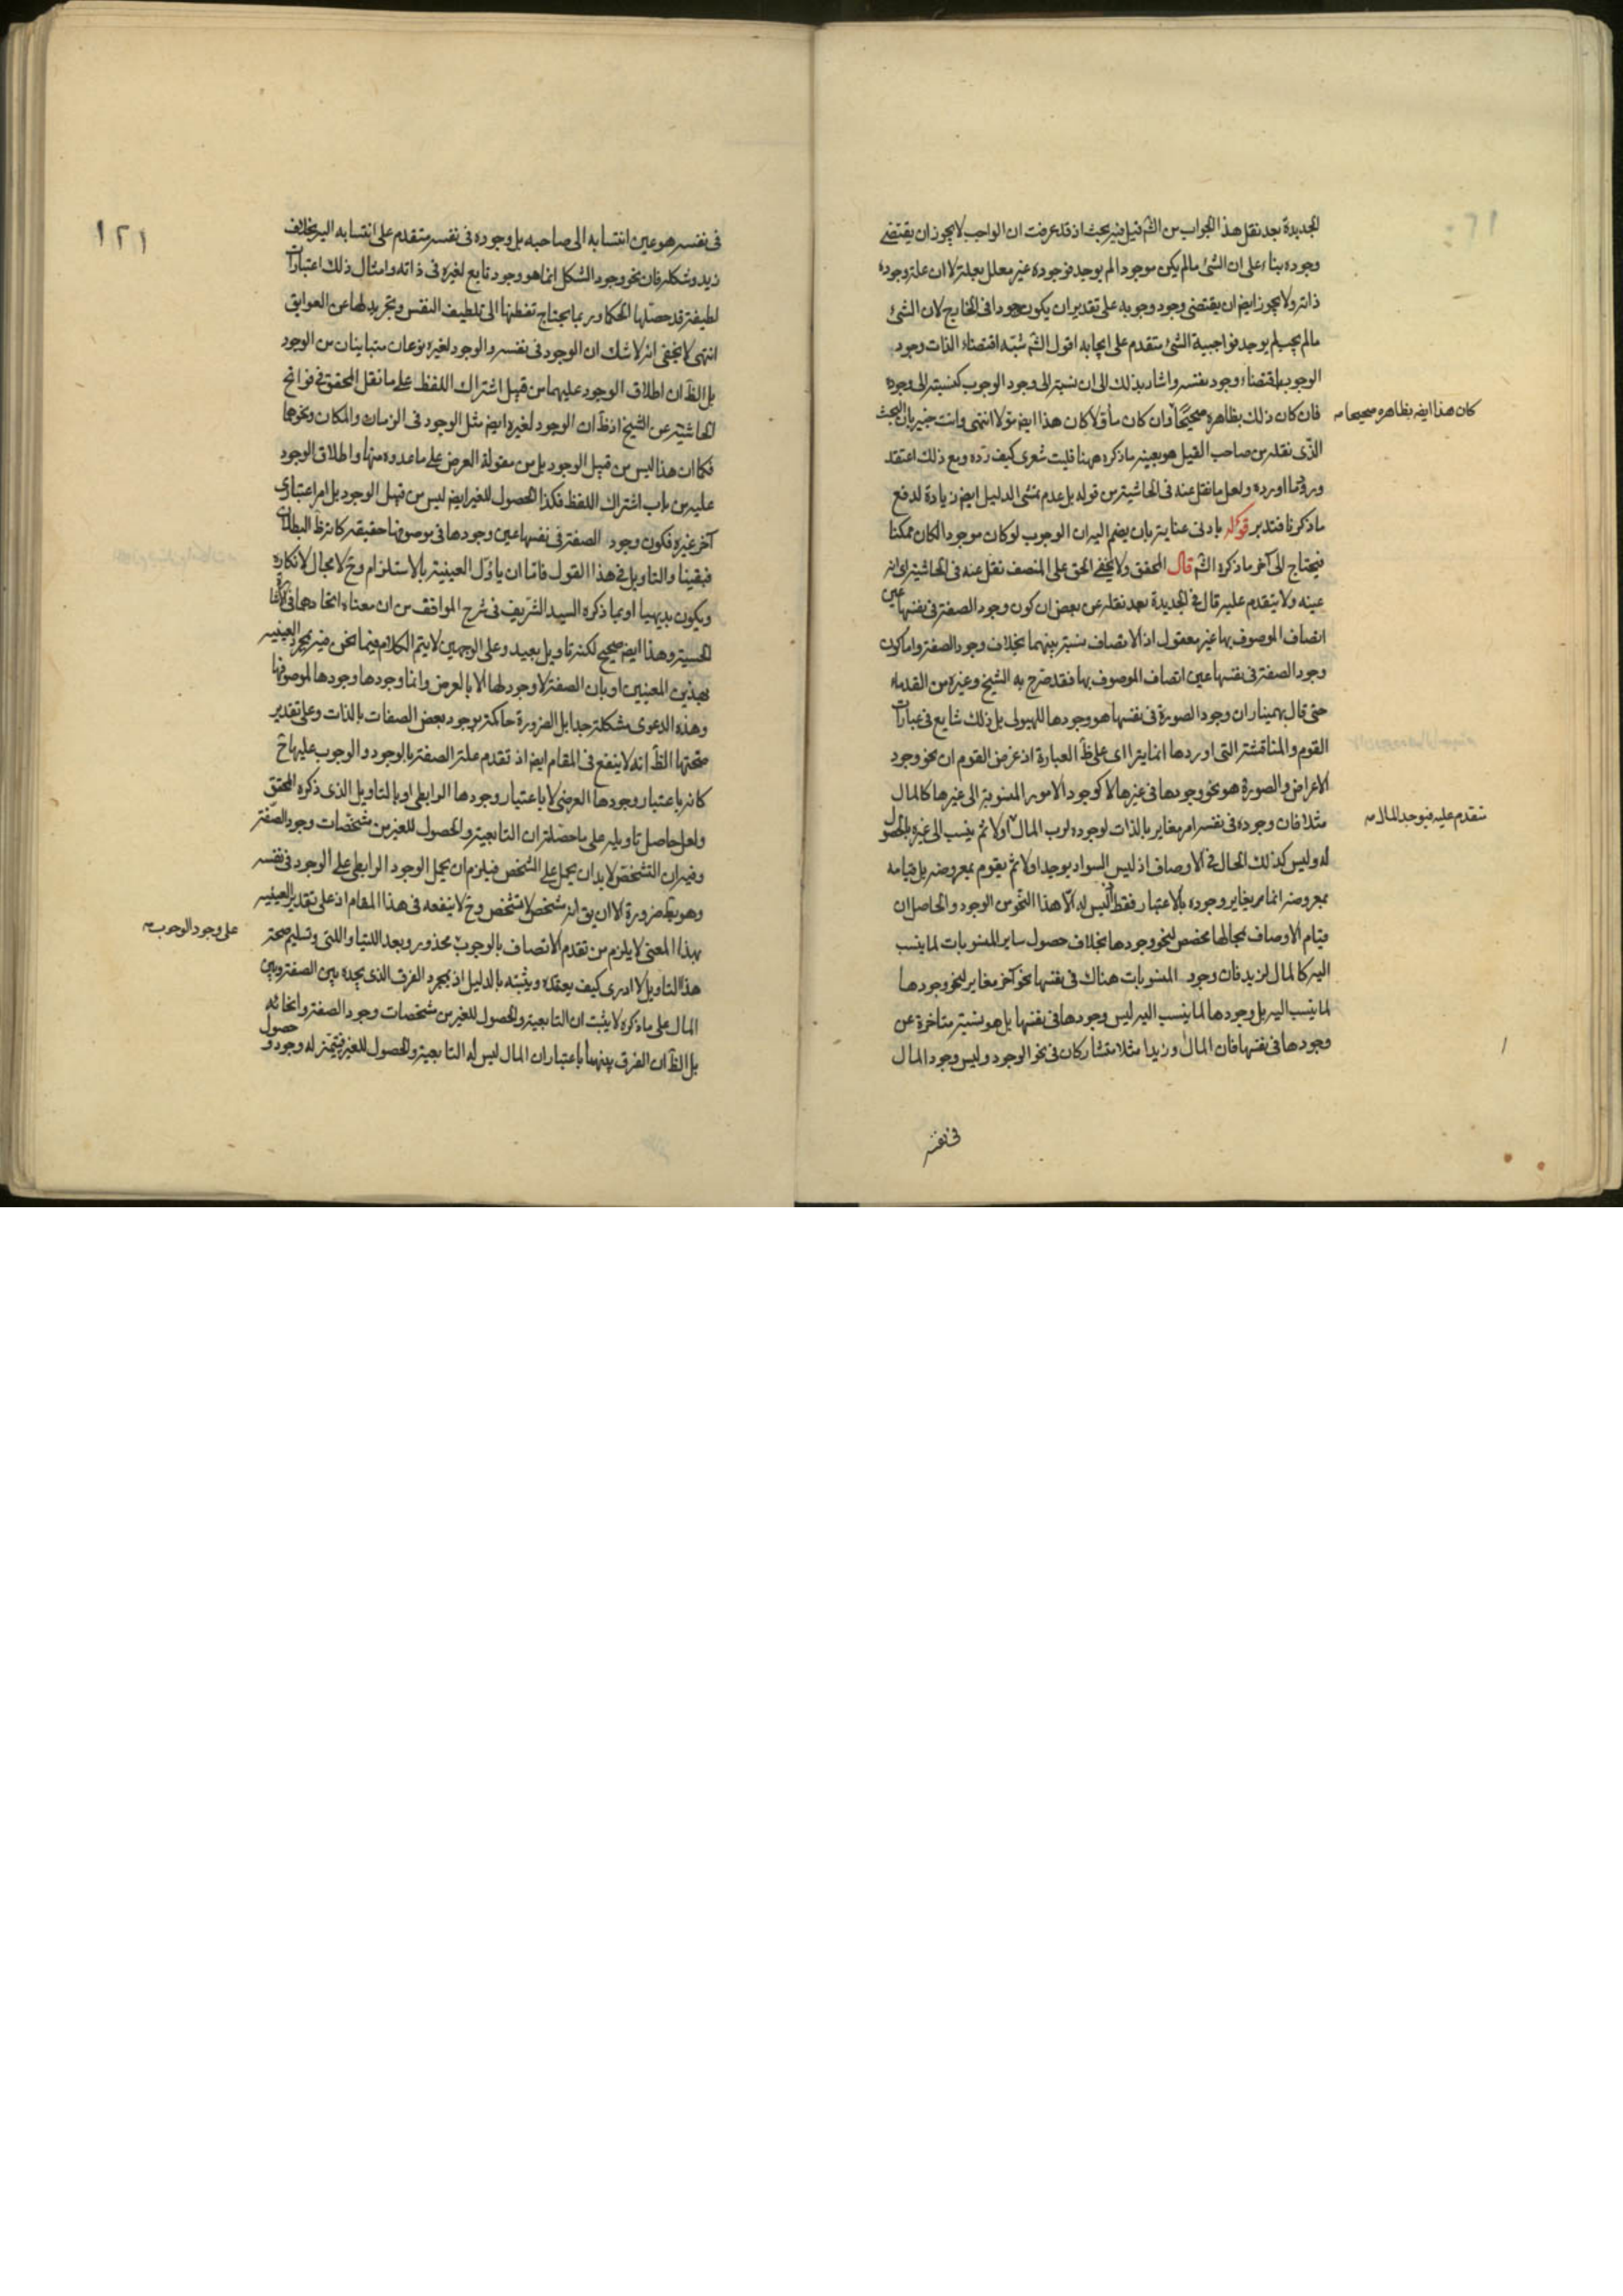 الجديدة بعد نقل هذا الجواب من الشم قيل فيه بحث اذ قد عرفت ان الواجب لا يجوز ان يقتضى
وجوده بناء على ان الشئ ما لم يكن موجودا لم يوجد فوجوده غير معلل بعلة لا ان علة وجوده
ذاته ولا يجوز ايضا ان يقتضى وجود وجوبه على تقدير ان يكون موجودا فى الخارج لان الشئ
ما لم يجب لم يوجد فواجبية الشئ متقدم على ايجابه اقول الشم شبّه اقتضاء الذات وجود
الوجوب باقتضاء وجود نفسه واشار بذلك الى ان نسبته الى وجود الوجوب كنسبته الى وجوده
فان كان ذلك بظاهره صحيحًا وان كان مأوّلا كان هذا ايضا مؤولا انتهى وانت خبير بان البحث
كان هذا ايضا بظاهره صحيحا صح
الذى نقله من صاحب القيل هو بعينه ما ذكره ههنا فليت شعرى كيف ردّه ومع ذلك اعتقد
ورود ما اورده ولعل ما نقل عنه فى الحاشية من قوله بل عدم تمشى الدليل ايضا زيادة لدفع
ما ذكرنا فتدبر قوله بادنى عناية بان يضم اليه ان الوجوب لو كان موجودا لكان ممكنا
فيحتاج الى آخر ما ذكره الشم قال المحقق ولا يخفى الحق على المنصف نقل عنه فى الحاشية اى انه
عينه ولا يتقدم عليه قال فى الجديدة بعد نقله عن بعض ان كون وجود الصفة فى نفسها عين
اتصاف الموصوف بها غير معقول اذ الاتصاف نسبة بينهما بخلاف وجود الصفة واما كون
وجود الصفة فى نفسها عين اتصاف الموصوف بها فقد صرّح به الشيخ وغيره من القدماء
حتى قال بهمنيار ان وجود الصورة فى نفسها هو وجودها للهيولى بل ذلك شايع فى عبارات
القوم والمناقشة التى اوردها انما يتراأى على ظ العبارة اذ غرض القوم ان نحو وجود
الاعراض والصورة هو نحو وجودها فى غيرها لا كوجود الامور المنسوبة الى غيرها كالمال
مثلا فان وجوده فى نفسه امر مغاير بالذات لوجوده لرب المال اولا ثم ينسب الى غيره بالحصول
تتقدم عليه فيوجد المال صح
له وليس كذلك الحال فى الاوصاف اذ ليس السواد يوجد اولا ثم يقوم بمعروضه بل قيامه
بمعروضه انما يغاير وجوده بالاعتبار فقط اذ ليس له الا هذا النحو من الوجود والحاصل ان
قيام الاوصاف بمحالها مخصص لنحو وجودها بخلاف حصول ساير المنسوبات لما ينسب
اليه كالمال لزيد فان وجود المنسوبات هناك فى نفسها نحو آخر مغاير لنحو وجودها
لما ينسب اليه بل وجودها لما ينسب اليه ليس وجودها فى نفسها بل هو نسبة متأخرة عن
وجودها فى نفسها فان المال وزيدا مثلا متشاركان فى نحو الوجود وليس وجود المال
فى نفسه
١٢١
فى نفسه هو عين انتسابه الى صاحبه بل وجوده فى نفسه متقدم على انتسابه اليه بخلاف
زيد وشكله فان نحو وجود الشكل انما هو وجود تابع لغيره فى ذاته وامثال ذلك اعتبارات
لطيفة قد حصّلها الحكما وربما يحتاج تفطنها الى تلطيف النفس وتجريد لها عن العوايق
انتهى لا يخفى انه لا شك ان الوجود فى نفسه والوجود لغيره نوعان متباينان من الوجود
بل الظ ان اطلاق الوجود عليهما من قبيل اشتراك اللفظ على ما نقل المحقق فى فواتح
الحاشية عن الشيخ اذ ظ ان الوجود لغيره ايضا مثل الوجود فى الزمان والمكان ونحوها
فكما ان هذا ليس من قبيل الوجود بل من مقولة العرض على ما عدوه منها واطلاق الوجود
عليه من باب اشتراك اللفظ فكذا الحصول للغير ايضا ليس من قبيل الوجود بل امر اعتبارى
آخر غيره فكون وجود الصفة فى نفسها عين وجودها فى موصوفها حقيقة كانه ظ البطلان
فبقينا والتاويل فى هذا القول فاما ان يأوّل العينية بالاستلزام وح لا مجال لانكاره
ويكون بديهيا او بما ذكره السيد الشريف فى شرح المواقف من ان معناه اتحادهما فى الاشارة
الحسية وهذا ايضا صحيح لكنه تاويل بعيد وعلى الوجهين لا يتم الكلام فيما نحن فيه بمجرد العينية
بهذين المعنيين او بان الصفة لا وجود لها الا بالعرض وانما وجودها وجودها لموصوفها
وهذه الدعوى مشكلة جدا بل الضرورة حاكمة بوجود بعض الصفات بالذات وعلى تقدير
صحتها الظ انه لا ينفع فى المقام ايضا اذ تقدم علة الصفة بالوجود والوجوب عليها ح
كانه باعتبار وجودها العرضى لا باعتبار وجودها الرابطى او بالتاويل الذى ذكره المحقق
ولعل حاصل تاويله على ما حصّلته ان التابعية والحصول للغير من مشخصات وجود الصفة
وفيه ان التشخص لا بد ان يحمل على الشخص فيلزم ان يحمل الوجود الرابطى على الوجود فى نفسه
وهو بط ضرورة الا ان يق انه شخص لا تشخص وح لا ينفعه فى هذا المقام اذ على تقدير العينية
بهذا المعنى لا يلزم من تقدم الاتصاف بالوجوب محذور وبعد اللتيا واللتى وتسليم صحة
على وجود الوجوب صح
هذا التاويل لا ادرى كيف يعتقده ويثبته بالدليل اذ بمجرد الفرق الذى يجده بين الصفة وبين
المال على ما ذكره لا يثبت ان التابعية والحصول للغير من مشخصات وجود الصفة وانحائه
بل الظ ان الفرق بينهما باعتبار ان المال ليس له التابعية والحصول للغير فيتميز له وجود و حصول